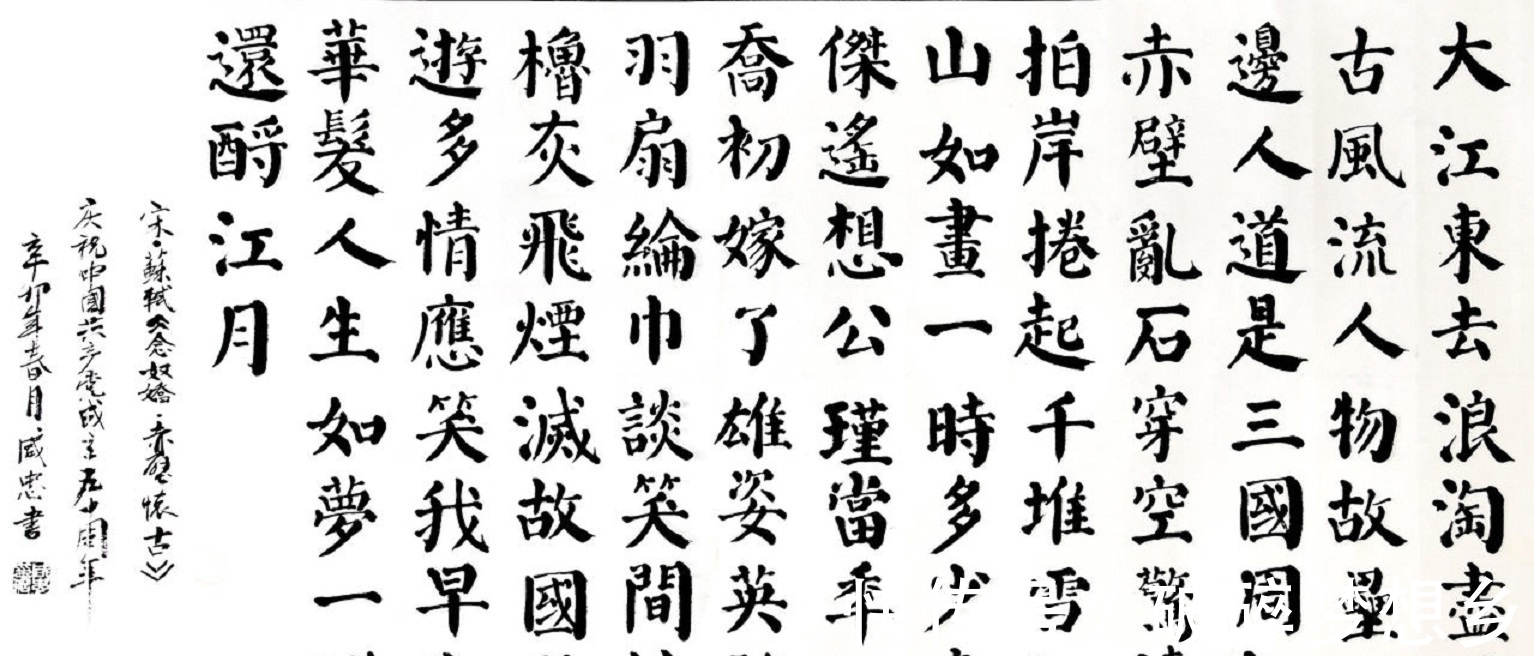 大江東去浪淘盡
古風流人物故壘
邊人道是三國周
赤壁亂石穿空驚
拍岸捲起千堆雪
山如畫一時多少
傑遙想公瑾當年
喬初嫁了雄姿英
羽扇綸巾談笑間
櫓灰飛煙滅故國
遊多情應笑我早
華髮人生如夢一
還酹江月
宋·蘇軾《念奴嬌·赤壁懷古》
庆祝中國共产党成立九十周年
辛卯年春月咸忠書